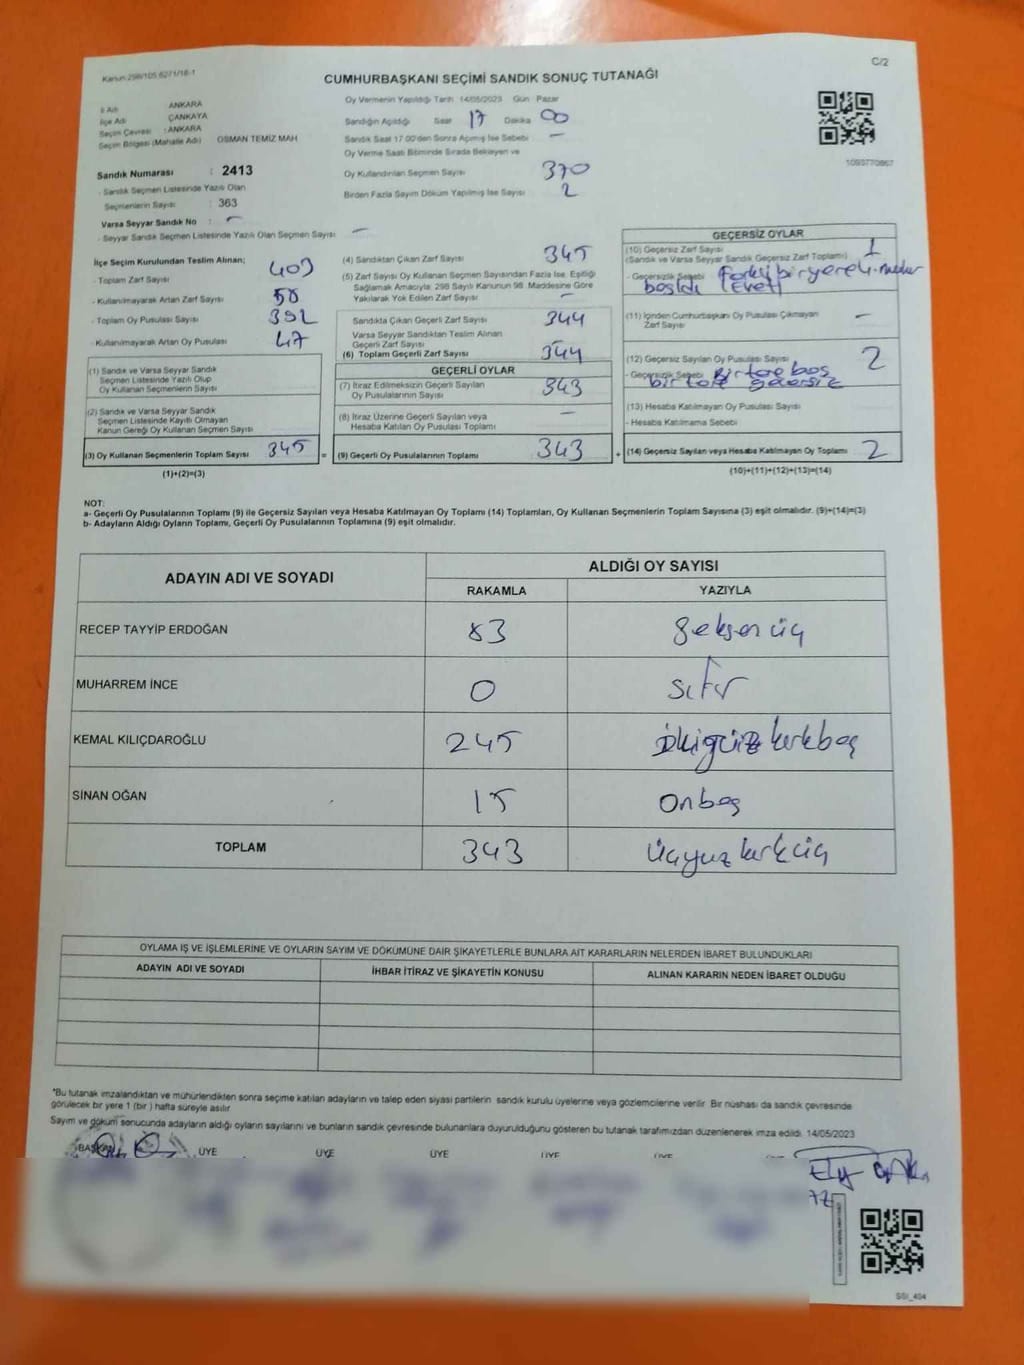 Kanun:298/105,6271/18-1
C/2
CUMHURBAŞKANI SEÇİMİ SANDIK SONUÇ TUTANAĞI
İl Adı ANKARA
İlçe Adı ÇANKAYA
Seçim Çevresi : ANKARA
Seçim Bölgesi (Mahalle Adı) OSMAN TEMİZ MAH
Sandık Numarası : 2413
- Sandık Seçmen Listesinde Yazılı Olan
Seçmenlerin Sayısı : 363
Varsa Seyyar Sandık No : -
- Seyyar Sandık Seçmen Listesinde Yazılı Olan Seçmen Sayısı : -
Oy Vermenin Yapıldığı Tarih 14/05/2023 Gün Pazar
Sandığın Açıldığı Saat 17 Dakika 00
Sandık Saat 17.00'den Sonra Açılmış İse Sebebi -
Oy Verme Saati Bitiminde Sırada Bekleyen ve
Oy Kullandırılan Seçmen Sayısı 370
Birden Fazla Sayım Döküm Yapılmış İse Sayısı 2
1093770867
İlçe Seçim Kurulundan Teslim Alınan;
- Toplam Zarf Sayısı 403
- Kullanılmayarak Artan Zarf Sayısı 58
- Toplam Oy Pusulası Sayısı 392
- Kullanılmayarak Artan Oy Pusulası 47
(1) Sandık ve Varsa Seyyar Sandık
Seçmen Listesinde Yazılı Olup
Oy Kullanan Seçmenlerin Sayısı
(2) Sandık ve Varsa Seyyar Sandık
Seçmen Listesinde Kayıtlı Olmayan
Kanun Gereği Oy Kullanan Seçmen Sayısı
(3) Oy Kullanan Seçmenlerin Toplam Sayısı 345 =
(1)+(2)=(3)
(4) Sandıktan Çıkan Zarf Sayısı 345
(5) Zarf Sayısı Oy Kullanan Seçmen Sayısından Fazla İse, Eşitliği
Sağlamak Amacıyla; 298 Sayılı Kanunun 98. Maddesine Göre
Yakılarak Yok Edilen Zarf Sayısı -
Sandıkta Çıkan Geçerli Zarf Sayısı 344
Varsa Seyyar Sandıktan Teslim Alınan
Geçerli Zarf Sayısı -
(6) Toplam Geçerli Zarf Sayısı 344
GEÇERLİ OYLAR
(7) İtiraz Edilmeksizin Geçerli Sayılan
Oy Pusulalarının Sayısı 343
(8) İtiraz Üzerine Geçerli Sayılan veya
Hesaba Katılan Oy Pusulası Toplamı -
(9) Geçerli Oy Pusulalarının Toplamı 343 +
GEÇERSİZ OYLAR
(10) Geçersiz Zarf Sayısı 1
(Sandık ve Varsa Seyyar Sandık Geçersiz Zarf Toplamı)
- Geçersizlik Sebebi Farklı bir yere mühür
basıldı (Evet)
(11) İçinden Cumhurbaşkanı Oy Pusulası Çıkmayan
Zarf Sayısı -
(12) Geçersiz Sayılan Oy Pusulası Sayısı 2
- Geçersizlik Sebebi Bir tane boş
bir tane geçersiz
(13) Hesaba Katılmayan Oy Pusulası Sayısı
- Hesaba Katılmama Sebebi
(14) Geçersiz Sayılan veya Hesaba Katılmayan Oy Toplamı 2
(10)+(11)+(12)+(13)=(14)
NOT:
a- Geçerli Oy Pusulalarının Toplamı (9) ile Geçersiz Sayılan veya Hesaba Katılmayan Oy Toplamı (14) Toplamları, Oy Kullanan Seçmenlerin Toplam Sayısına (3) eşit olmalıdır. (9)+(14)=(3)
b- Adayların Aldığı Oyların Toplamı, Geçerli Oy Pusulalarının Toplamına (9) eşit olmalıdır.
ADAYIN ADI VE SOYADI ALDIĞI OY SAYISI
RAKAMLA YAZIYLA
RECEP TAYYİP ERDOĞAN 83 Seksen üç
MUHARREM İNCE 0 sıfır
KEMAL KILIÇDAROĞLU 245 İkiyüz kırkbeş
SİNAN OĞAN 15 Onbeş
TOPLAM 343 Üçyüz kırküç
OYLAMA İŞ VE İŞLEMLERİNE VE OYLARIN SAYIM VE DÖKÜMÜNE DAİR ŞİKAYETLERLE BUNLARA AİT KARARLARIN NELERDEN İBARET BULUNDUKLARI
ADAYIN ADI VE SOYADI İHBAR İTİRAZ VE ŞİKAYETİN KONUSU ALINAN KARARIN NEDEN İBARET OLDUĞU
*Bu tutanak imzalandıktan ve mühürlendikten sonra seçime katılan adayların ve talep eden siyasi partilerin sandık kurulu üyelerine veya gözlemcilerine verilir. Bir nüshası da sandık çevresinde
görülecek bir yere 1 (bir ) hafta süreyle asılır.
Sayım ve döküm sonucunda adayların aldığı oyların sayılarını ve bunların sandık çevresinde bulunanlara duyurulduğunu gösteren bu tutanak tarafımızdan düzenlenerek imza edildi. 14/05/2023
BAŞKAN ÜYE ÜYE ÜYE ÜYE ÜYE
SSİ_404